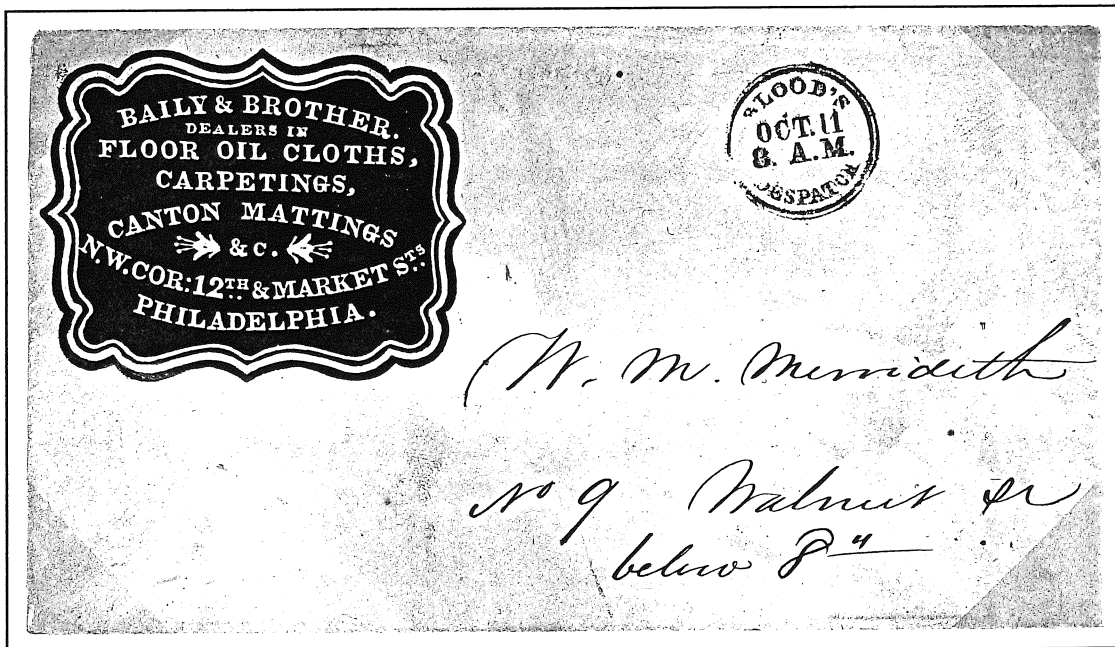 BAILY & BROTHER.
DEALERS IN
FLOOR OIL CLOTHS,
CARPETINGS,
CANTON MATTINGS
& C.
N.W. COR: 12TH & MARKET STS.
PHILADELPHIA.
BLOOD'S
OCT. 11
8. A.M.
DESPATCH
W. M. Merridith
No 9 Walnut St
below 8"